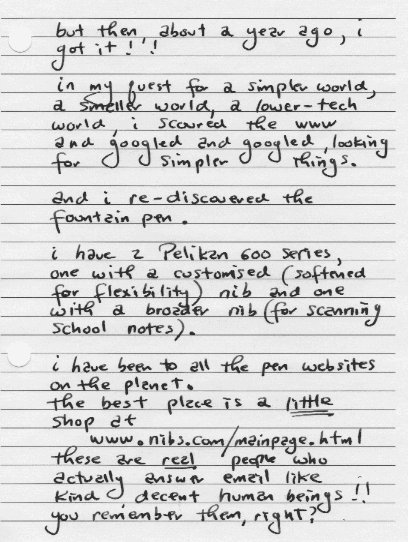 but then, about a year ago, i
got it!!!
in my quest for a simpler world,
a smaller world, a lower-tech
world, i scoured the www
and googled and googled, looking
for simpler things.
and i re-discovered the
fountain pen.
i have 2 Pelikan 600 series,
one with a customised (softened
for flexibility) nib and one
with a broader nib (for scanning
school notes).
i have been to all the pen websites
on the planet.
the best place is a little
shop at
www.nibs.com/mainpage.html
these are real people who
actually answer email like
kind decent human beings!!
you remember them, right?